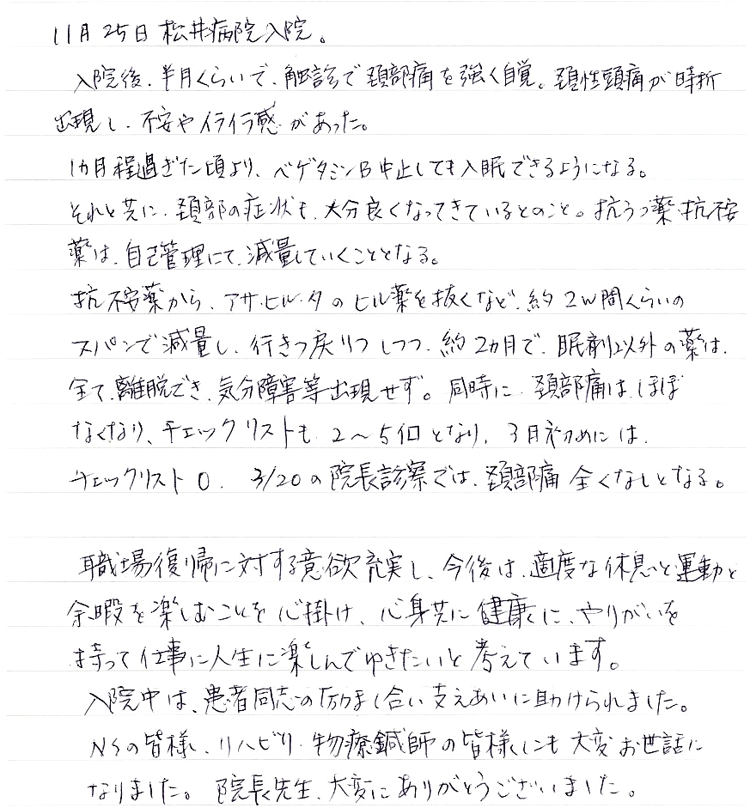 11月25日 松井病院入院。
入院後、半月くらいで、触診で頚部痛を強く自覚。頚性頭痛が時折
出現し、不安やイライラ感があった。
1カ月程過ぎた頃より、ベゲタミンB中止しても入眠できるようになる。
それと共に、頚部の症状も、大分良くなってきているとのこと。抗うつ薬・抗不安
薬は、自己管理にて、減量していくこととなる。
抗不安薬から、アサ・ヒル・タのヒル薬を抜くなど、約2W間くらいの
スパンで減量し、行きつ戻りつしつつ、約2カ月で、眠剤以外の薬は、
全て、離脱でき、気分障害等出現せず。同時に、頚部痛は、ほぼ
なくなり、チェックリストも、2～5個となり、3月初めには、
チェックリスト0、3/20の院長診察では、頚部痛全くなしとなる。
職場復帰に対する意欲充実し、今後は、適度な休息と運動と
余暇を楽しむことを心掛け、心身共に健康に、やりがいを
持って仕事に人生に楽しんでゆきたいと考えています。
入院中は、患者同志の励まし合い支えあいに助けられました。
NSの皆様、リハビリ・物療鍼師の皆様にも大変お世話に
なりました。院長先生、大変にありがとうございました。